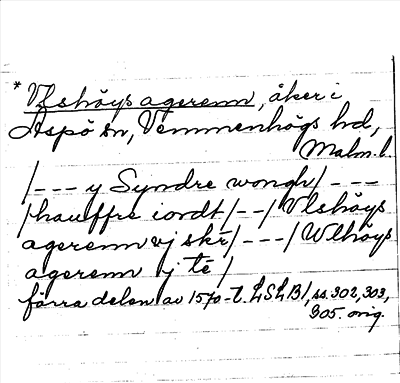 * Vlshöys agerenn, åker i
Äspö sn, Vemmenhögs hd,
Malm. l.
/--- y Syndre wongh/ ---
/hauffre iordt/--/ Vlshöys
agerenn vj skr/---/ Wlhöys
agerenn ij te/
förra delen av 1570-t. LSLB1, ss. 302, 303,
305. orig.